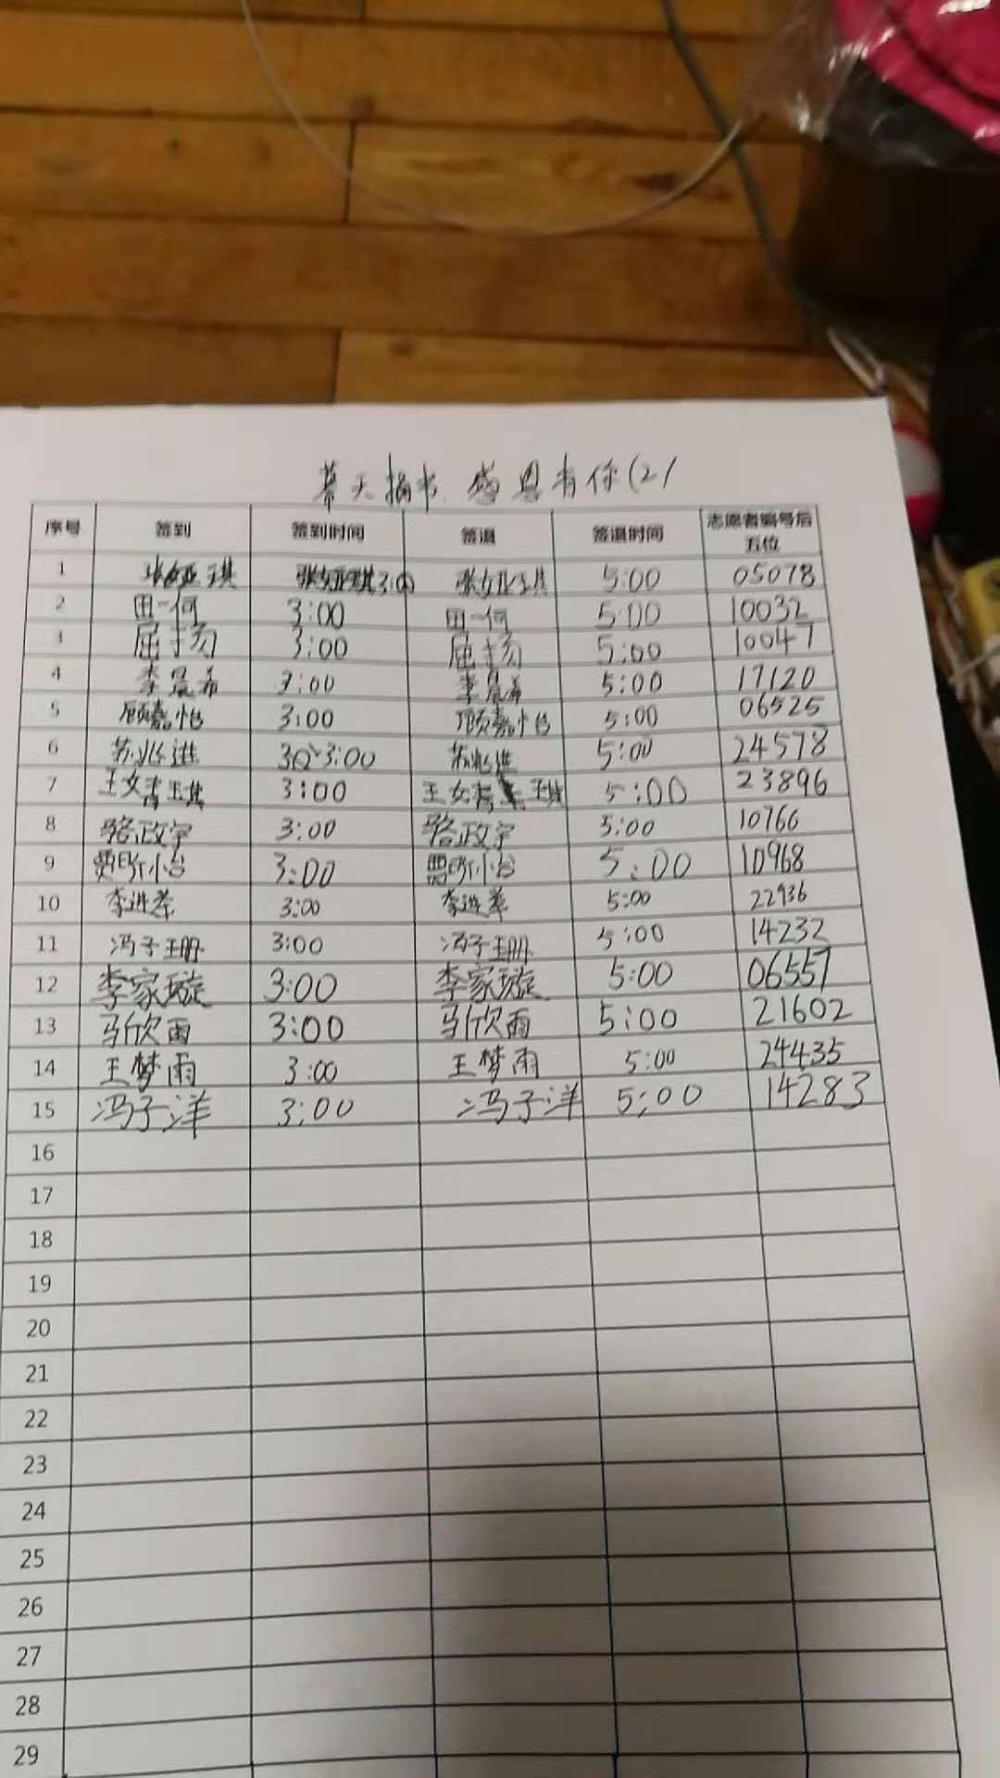 慕天捐书 感恩有你(2)
序号 签到 签到时间 签退 签退时间 志愿者编号后五位
1 张娅琪 3:00 张娅琪 5:00 05078
2 田一何 3:00 田一何 5:00 10032
3 屈扬 3:00 屈扬 5:00 10047
4 李晨希 3:00 李晨希 5:00 17120
5 顾嘉怡 3:00 顾嘉怡 5:00 06525
6 苏兆进 3:00 苏兆进 5:00 24578
7 王婧琪 3:00 王婧琪 5:00 23896
8 骆政宇 3:00 骆政宇 5:00 10766
9 贾昕怡 3:00 贾昕怡 5:00 10968
10 李进 3:00 李进 5:00 22936
11 冯子珊 3:00 冯子珊 5:00 14232
12 李家璇 3:00 李家璇 5:00 06557
13 马欣雨 3:00 马欣雨 5:00 21602
14 王梦雨 3:00 王梦雨 5:00 24435
15 冯子洋 3:00 冯子洋 5:00 14283
16
17
18
19
20
21
22
23
24
25
26
27
28
29